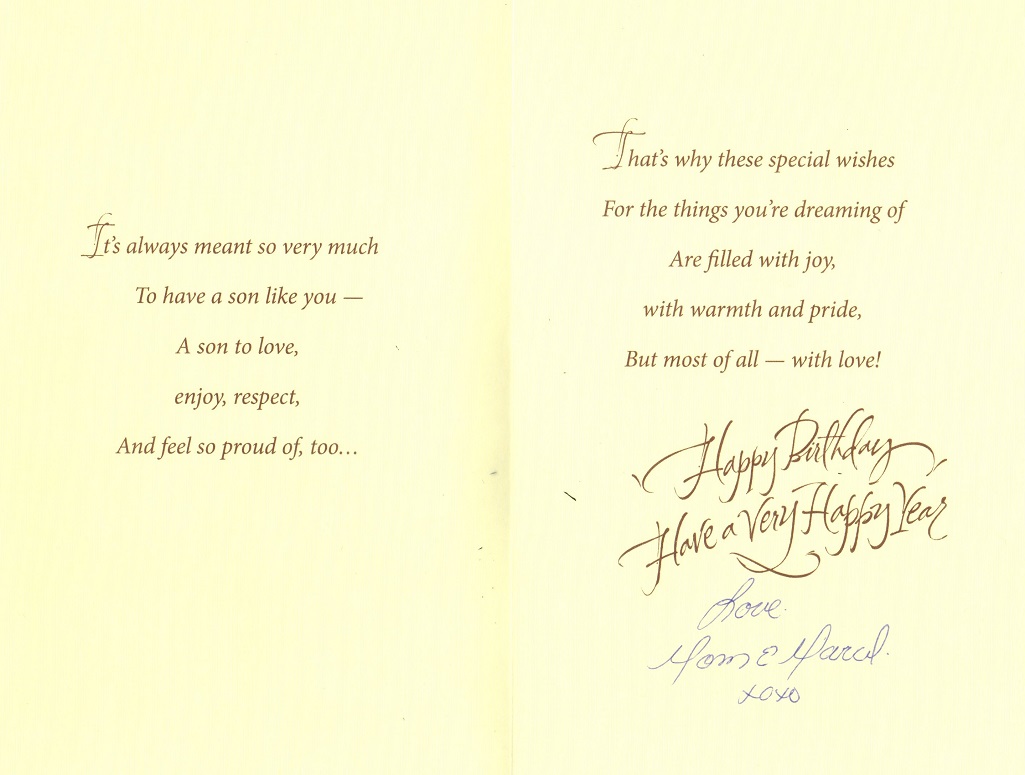 It's always meant so very much
To have a son like you —
A son to love,
enjoy, respect,
And feel so proud of, too...
That's why these special wishes
For the things you're dreaming of
Are filled with joy,
with warmth and pride,
But most of all — with love!
Happy Birthday
Have a Very Happy Year
Love.
Mom & Marcel.
xoxo